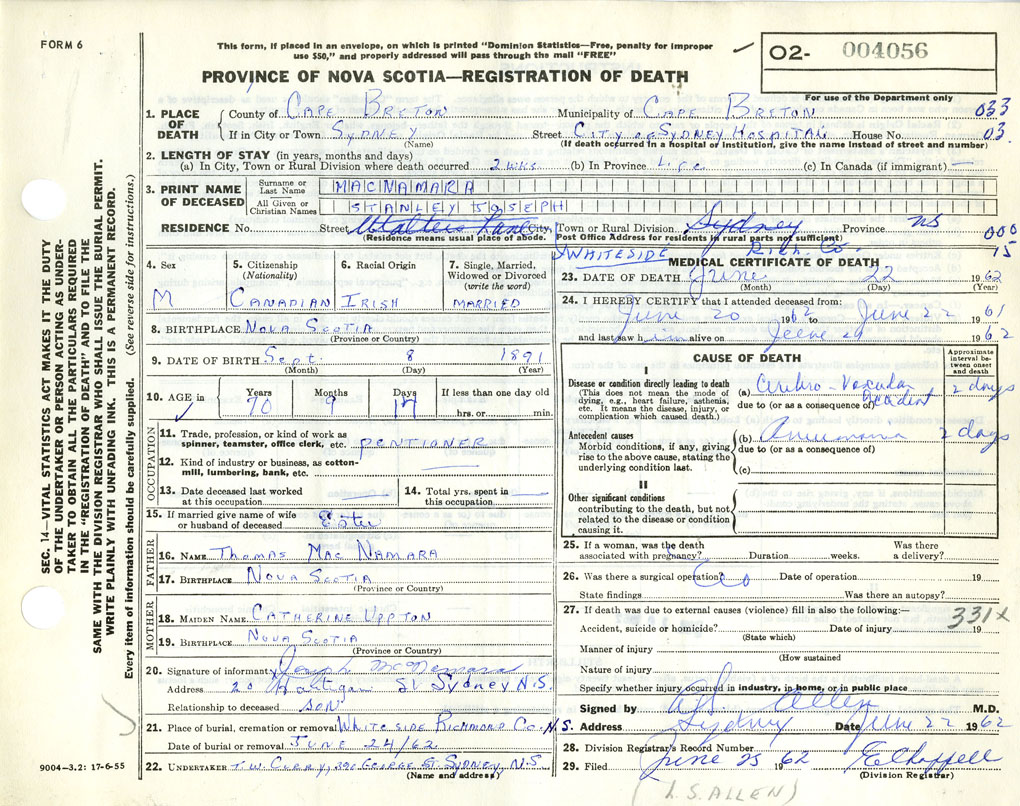 FORM 6
This form, if placed in an envelope, on which is printed "Dominion Statistics—Free, penalty for improper
use $50," and properly addressed will pass through the mail "FREE"
O2- 004056
For use of the Department only
PROVINCE OF NOVA SCOTIA—REGISTRATION OF DEATH
1. PLACE OF DEATH County of CAPE BRETON Municipality of CAPE BRETON 033
If in City or Town SYDNEY Street CITY OF SYDNEY HOSPITAL House No. 03
(Name) (If death occurred in a hospital or institution, give the name instead of street and number)
2. LENGTH OF STAY (in years, months and days)
(a) In City, Town or Rural Division where death occurred 2 wks. (b) In Province Life (c) In Canada (if immigrant) —
3. PRINT NAME OF DECEASED Surname or Last Name MACNAMARA
All Given or Christian Names STANLEY JOSEPH
RESIDENCE No. Street Walters Lane City, Town or Rural Division Sydney Province NS 000
(Residence means usual place of abode. Post Office Address for residents in rural parts not sufficient) 75
WHITESIDE RICH. CO.
4. Sex M
5. Citizenship (Nationality) CANADIAN
6. Racial Origin IRISH
7. Single, Married, Widowed or Divorced (write the word) MARRIED
8. BIRTHPLACE NOVA SCOTIA
(Province or Country)
9. DATE OF BIRTH Sept. 8 1891
(Month) (Day) (Year)
10. AGE in Years 70 Months 9 Days 14 If less than one day old
hrs. or min.
OCCUPATION
11. Trade, profession, or kind of work as spinner, teamster, office clerk, etc. PENTIONER
12. Kind of industry or business, as cotton-mill, lumbering, bank, etc. —
13. Date deceased last worked at this occupation —
14. Total yrs. spent in this occupation —
15. If married give name of wife or husband of deceased Ester
FATHER
16. NAME THOMAS MAC NAMARA
17. BIRTHPLACE NOVA SCOTIA
(Province or Country)
MOTHER
18. MAIDEN NAME CATHERINE UPPTON
19. BIRTHPLACE NOVA SCOTIA
(Province or Country)
20. Signature of informant Joseph McNamara
Address 20 St Sydney N.S.
Relationship to deceased SON
21. Place of burial, cremation or removal WHITE SIDE RICHMOND CO. N.S.
Date of burial or removal JUNE 24/62
22. UNDERTAKER T.W. CURRY, 390 GEORGE ST. SYDNEY, N.S.
(Name and address)
MEDICAL CERTIFICATE OF DEATH
23. DATE OF DEATH June 22 1962
(Month) (Day) (Year)
24. I HEREBY CERTIFY that I attended deceased from:
June 20 1962 to June 22 1961
and last saw him alive on 1962
CAUSE OF DEATH
Approximate interval between onset and death
I
Disease or condition directly leading to death
(This does not mean the mode of dying, e.g., heart failure, asthenia, etc. It means the disease, injury, or complication which caused death.)
(a) Cerebro-Vascular Accident 2 days
due to (or as a consequence of)
Antecedent causes
Morbid conditions, if any, giving rise to the above cause, stating the underlying condition last.
(b) 2 days
due to (or as a consequence of)
(c)
II
Other significant conditions
contributing to the death, but not related to the disease or condition causing it.
25. If a woman, was the death associated with pregnancy? Duration weeks. Was there a delivery?
26. Was there a surgical operation? No Date of operation 19
State findings Was there an autopsy?
27. If death was due to external causes (violence) fill in also the following:— 331X
Accident, suicide or homicide? Date of injury 19
(State which)
Manner of injury
(How sustained
Nature of injury
Specify whether injury occurred in industry, in home, or in public place
Signed by Allen M.D.
Address Sydney Date June 22 1962
28. Division Registrar's Record Number
29. Filed June 25 1962 E Chappell
(Division Registrar)
(I. S. ALLEN)
SEC. 14—VITAL STATISTICS ACT MAKES IT THE DUTY
OF THE UNDERTAKER OR PERSON ACTING AS UNDER-
TAKER TO OBTAIN ALL THE PARTICULARS REQUIRED
IN THE "REGISTRATION OF DEATH" AND TO FILE THE
SAME WITH THE DIVISION REGISTRAR WHO SHALL ISSUE THE BURIAL PERMIT.
WRITE PLAINLY WITH UNFADING INK. THIS IS A PERMANENT RECORD.
Every item of information should be carefully supplied. (See reverse side for instructions.)
9004—3.2: 17-6-55